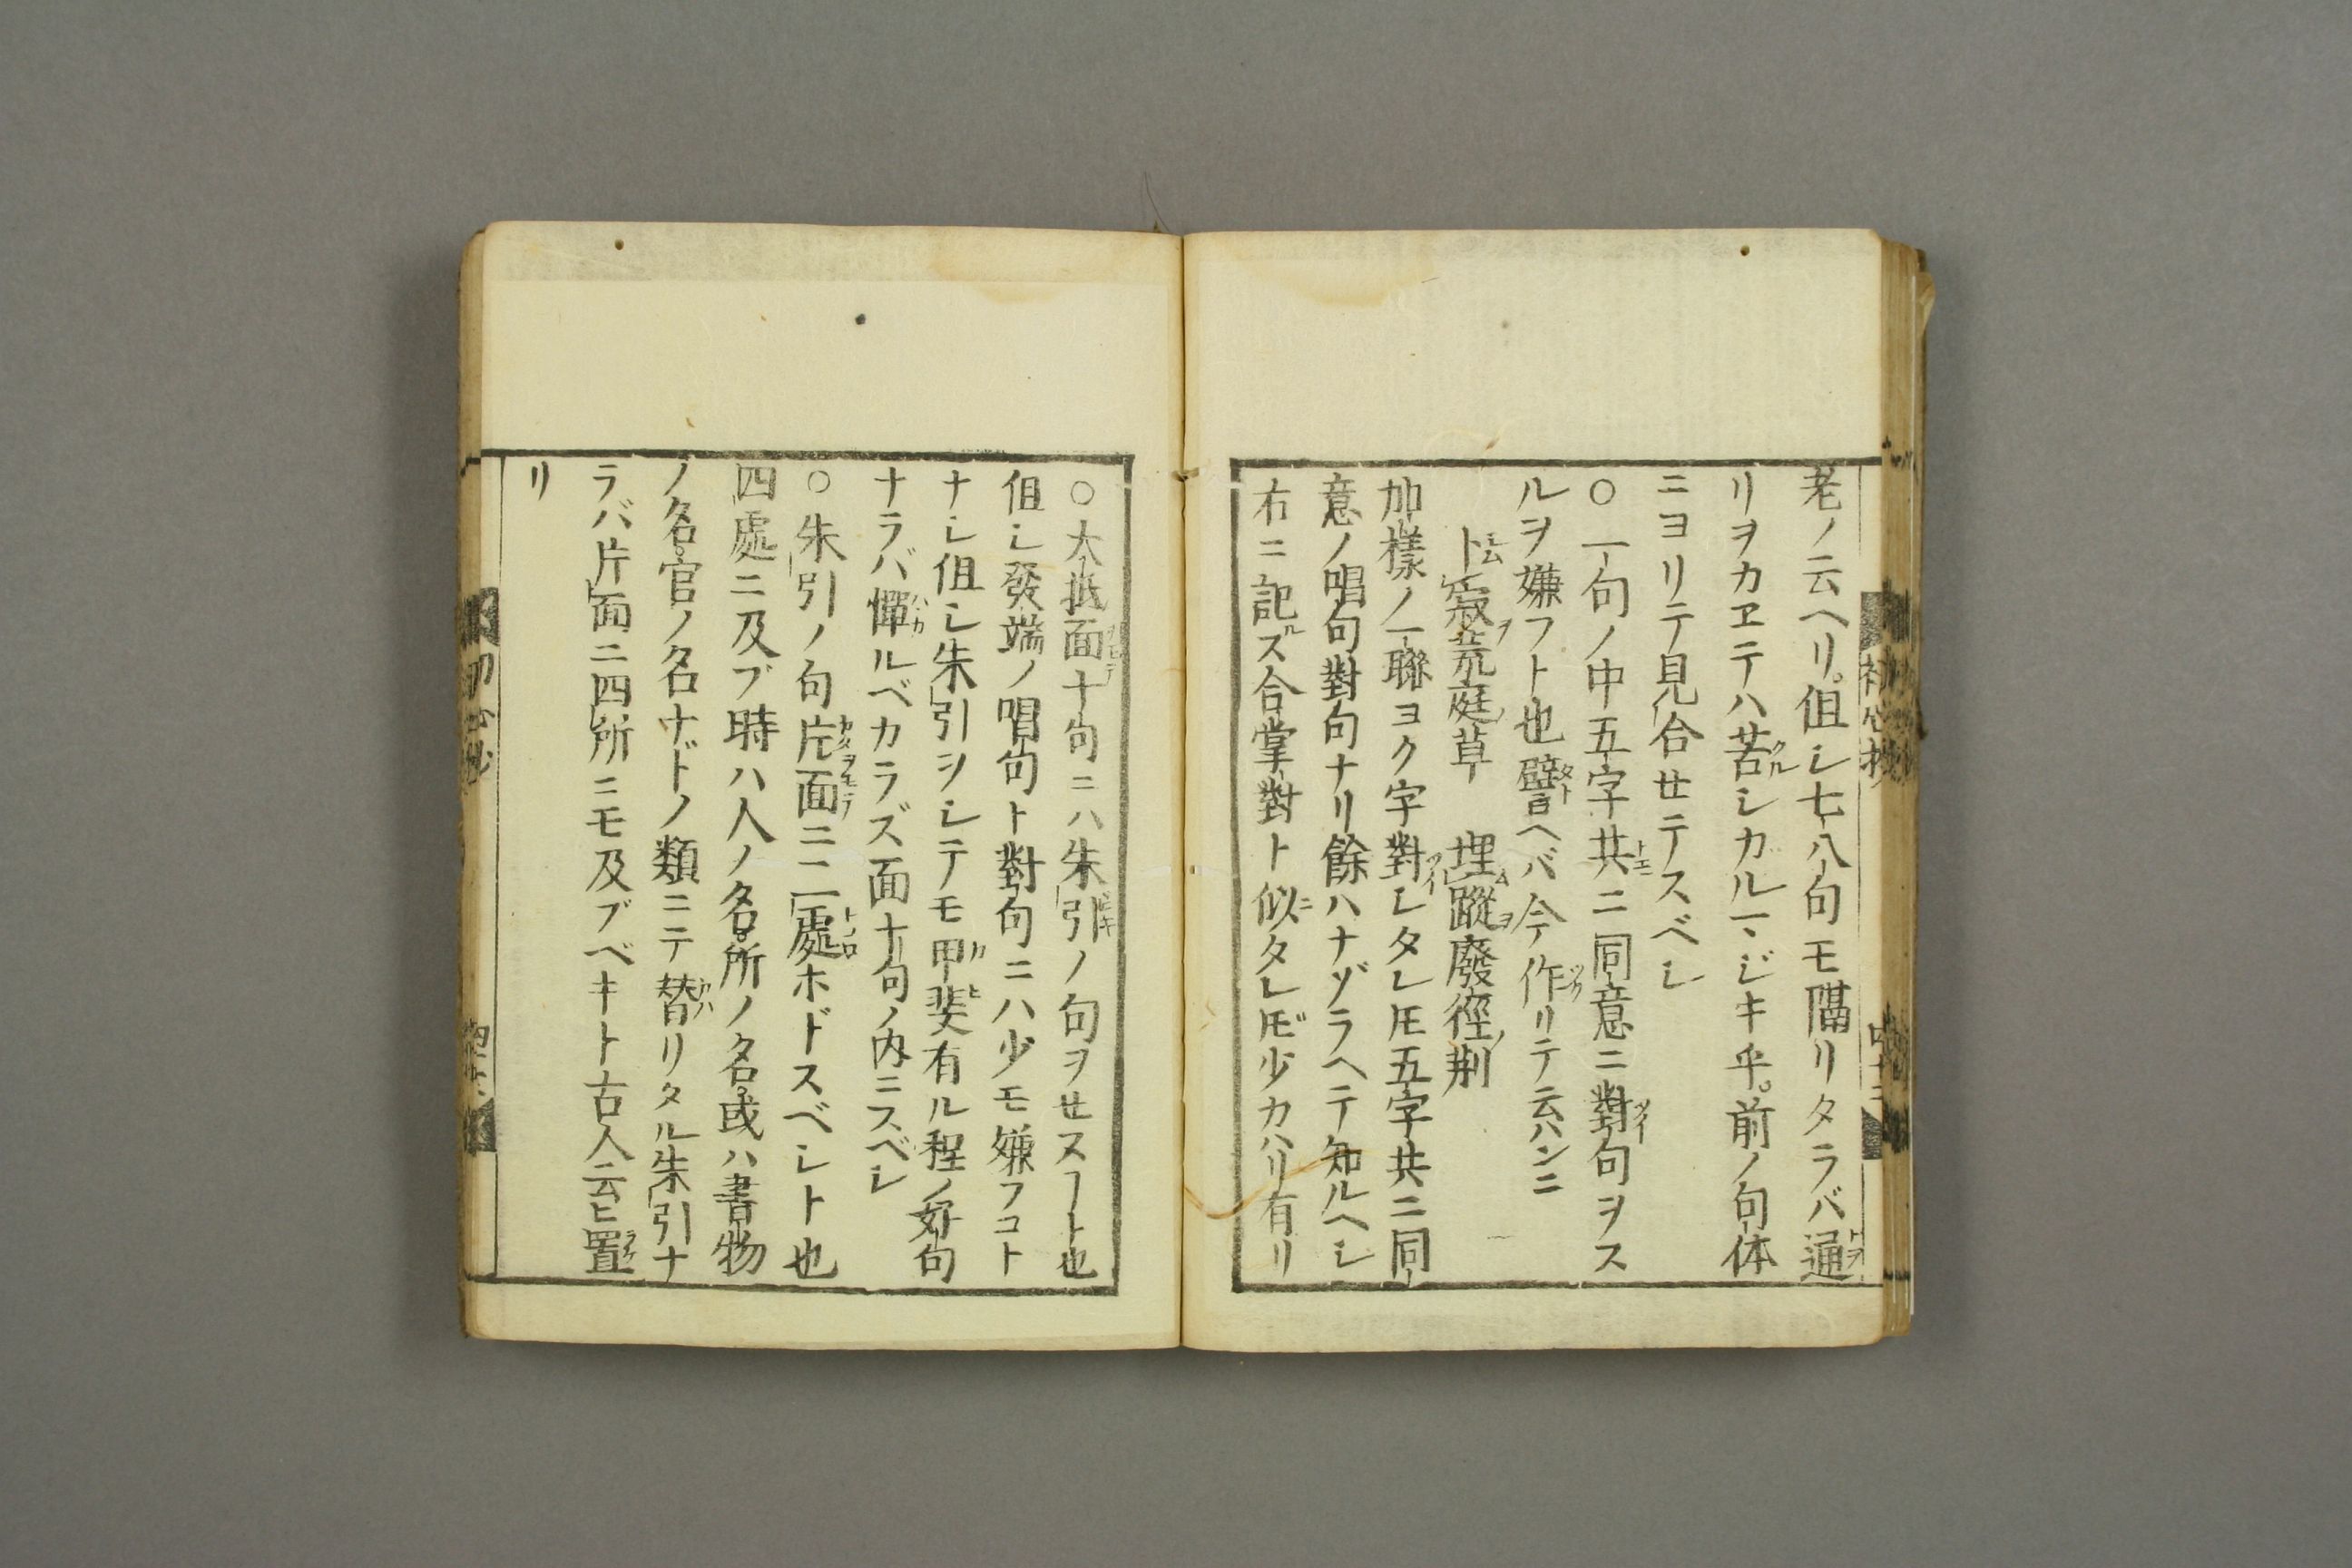 老ノ云ヘリ。但シ七八句モ隔リタラバ通
リヲカエテハ苦シカルマジキ乎。前ノ句体
ニヨリテ見合セテスベシ
○一句ノ中五字共ニ同意ニ對句ヲス
ルヲ嫌フト也譬ヘバ今作リテ云ハンニ
卜寂荒庭草　埋蹤廢徑荆
加樣ノ一聯ヨク字對シタレ𪜈五字共ニ同
意ノ唱句對句ナリ餘ハナゾラヘテ知ルヘシ
右ニ記ス合掌對ト似タレ𪜈少カハリ有リ
○大抵面十句ニハ朱引ノ句ヲせスヿト也
但シ發端ノ唱句ト對句ニハ少モ嫌フコト
ナシ但シ朱引ヲシテモ甲斐有ル程ノ好句
ナラバ憚ルベカラズ面十句ノ内ニスベシ
○朱引ノ句片面ニ二處ホドスベシト也
四處ニ及ブ時ハ人ノ名所ノ名或ハ書物
ノ名官ノ名ナドノ類ニテ替リタル朱引ナ
ラバ片面ニ四所ニモ及ブベキト古人云ヒ置
リ
初心抄